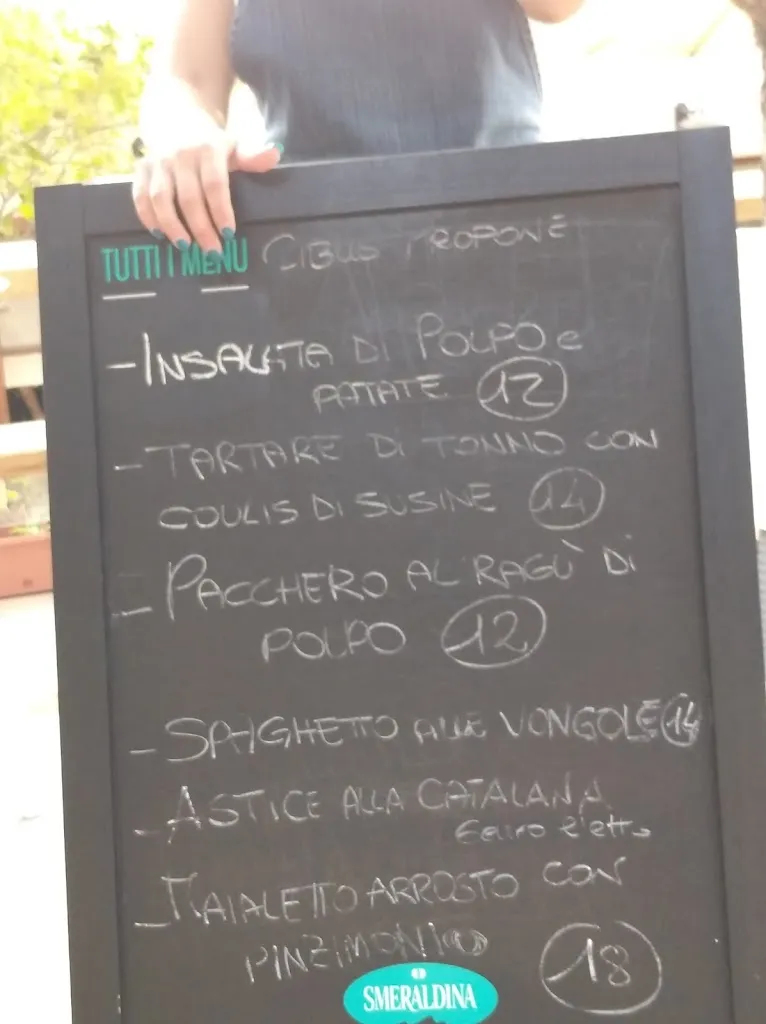 TUTTI I MENU CIBUS PROPONE
- INSALATA DI POLPO e
PATATE 12
- TARTARE DI TONNO CON
COULIS DI SUSINE 14
- PACCHERO AL RAGÙ DI
POLPO 12
- SPAGHETTO ALLE VONGOLE 14
- ASTICE ALLA CATALANA
euro l'etto
- MAIALETTO ARROSTO CON
PINZIMONIO 18
SMERALDINA